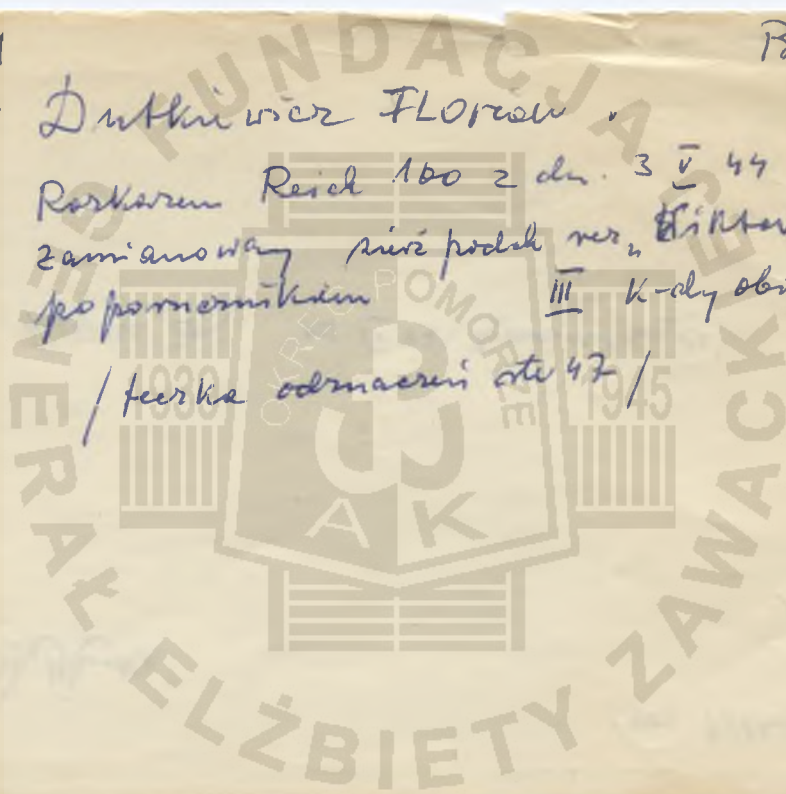 Dutkiewicz FLOrian.
Rozkazem Reich 160 z dn. 3 V 44
zamianowany sierż podch rez „Wiktor
po porucznikiem III K-dy obw
/ teczka odznaczeń str 47 /
FUNDACJA
GENERAŁ ELŻBIETY ZAWACKIEJ
OKRĘG POMORZE
1939
1945
AK